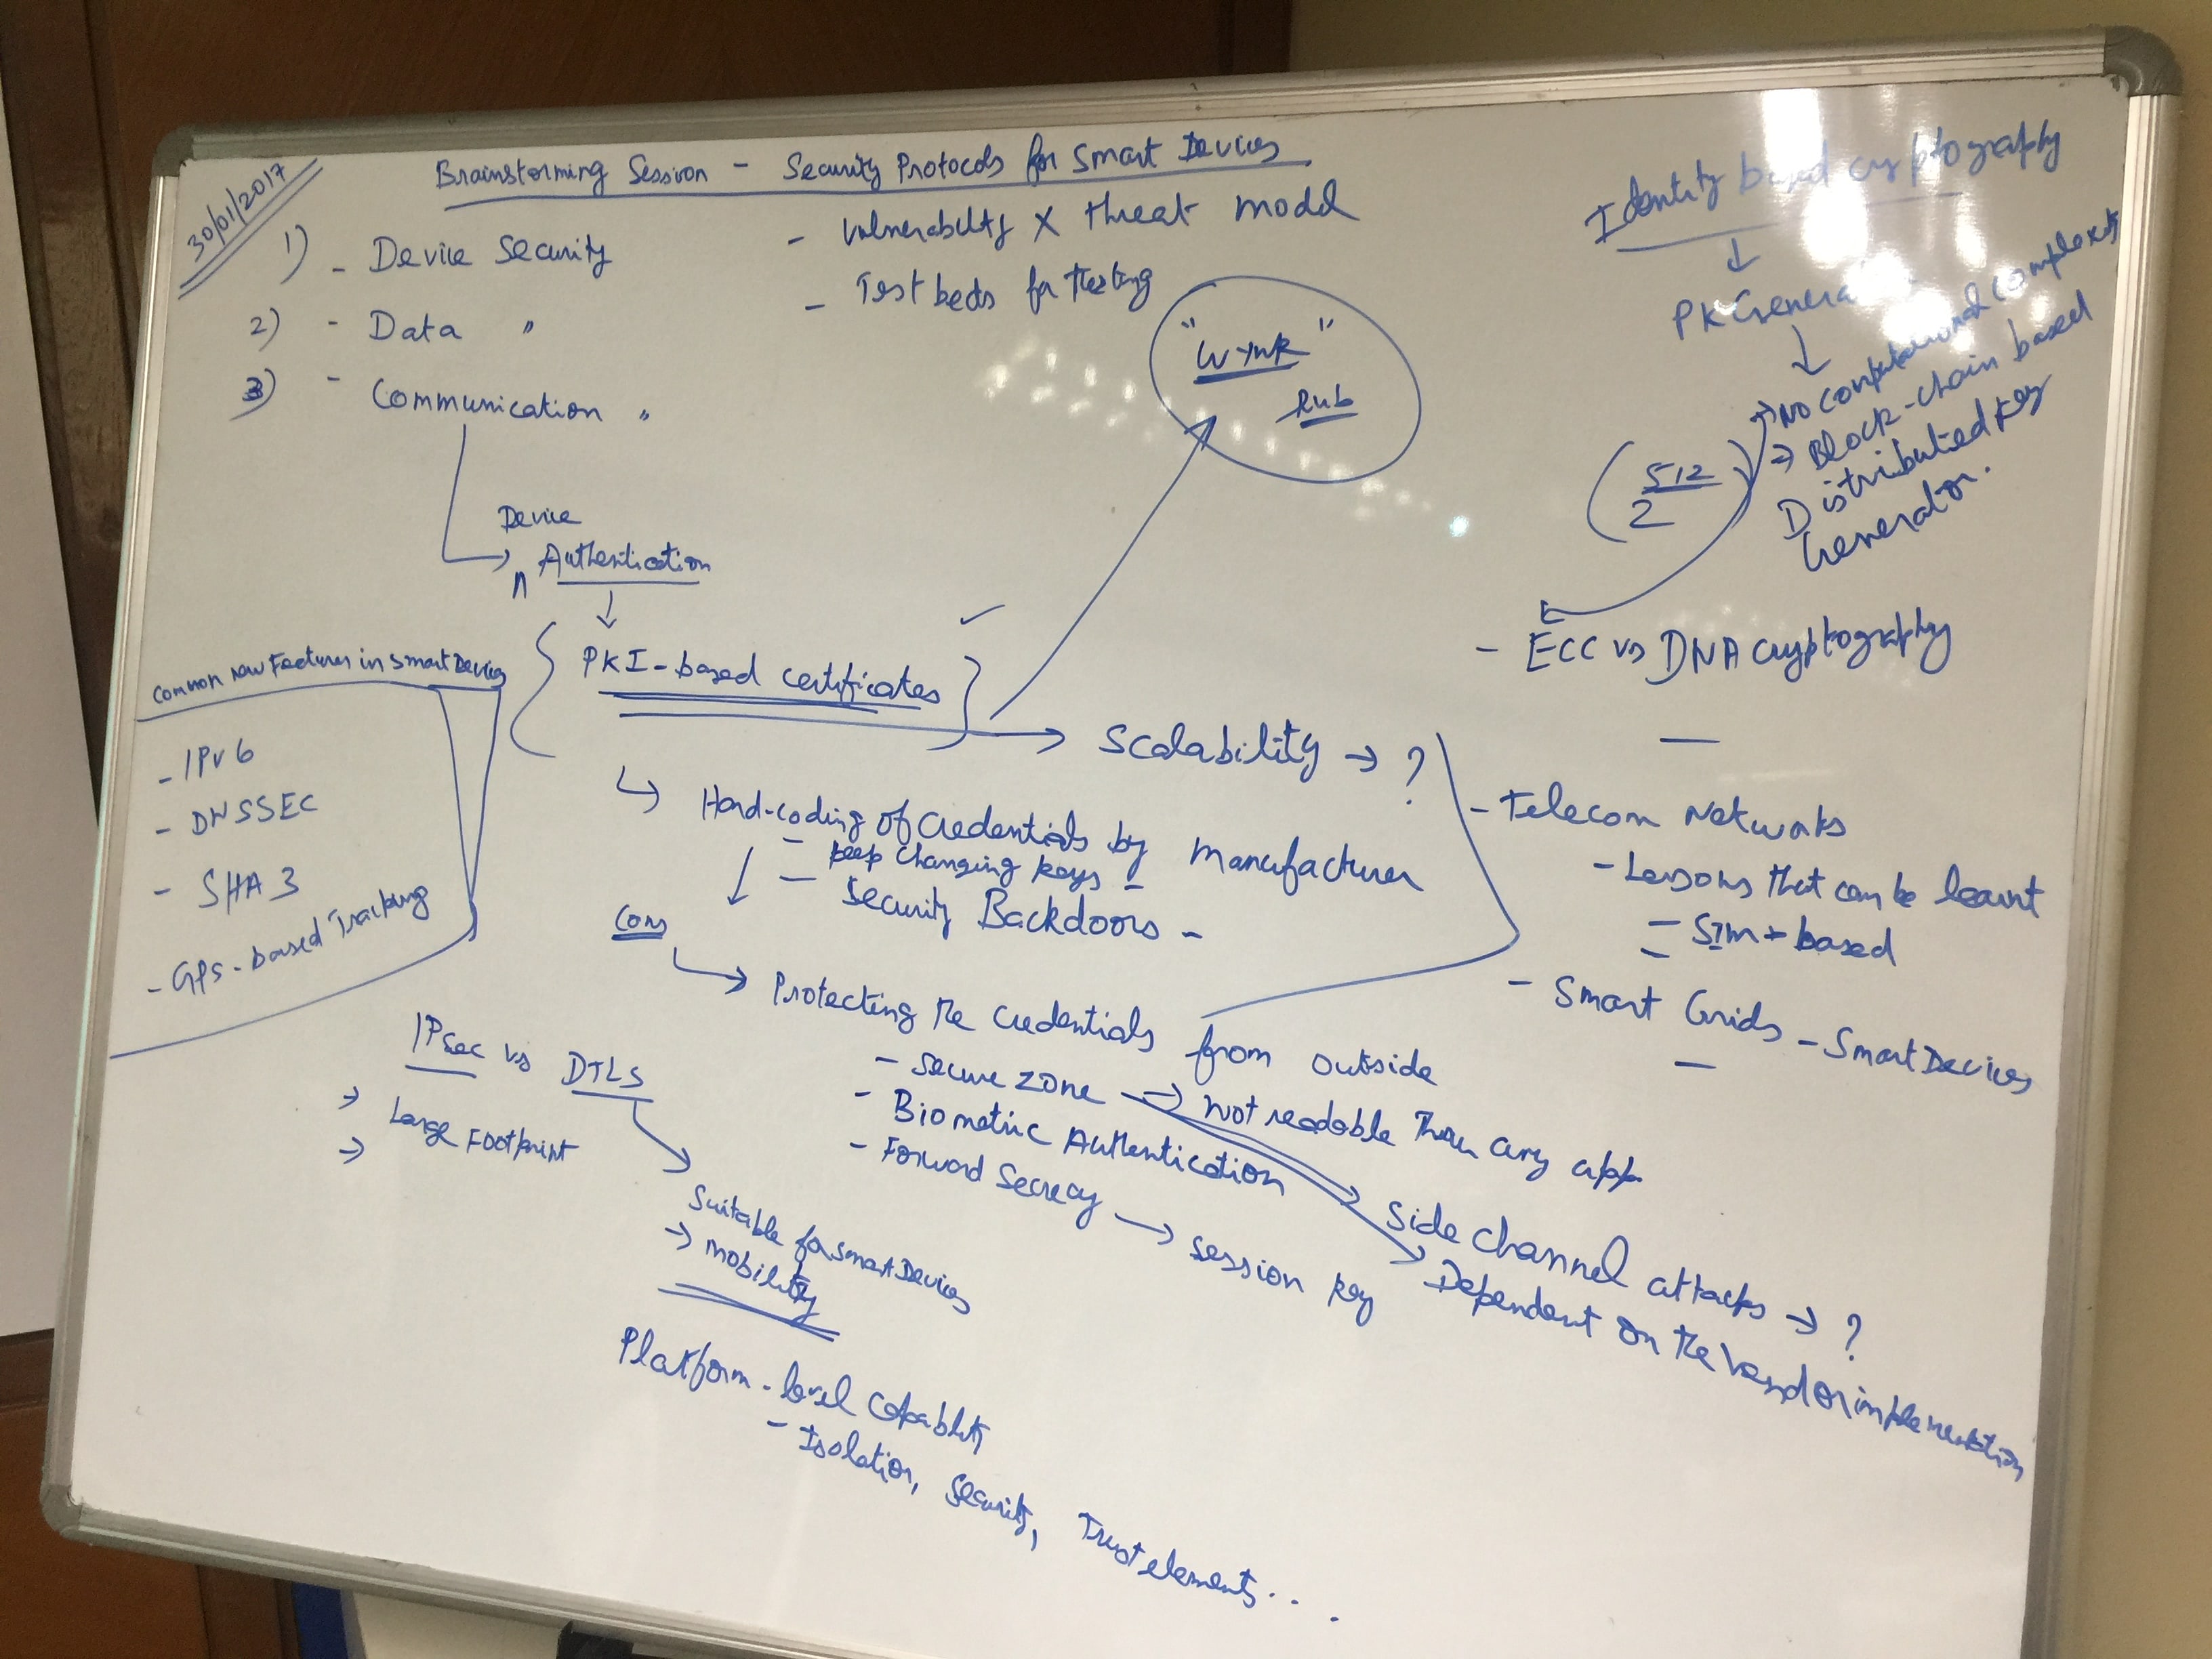 30/01/2017
Brainstorming Session - Security Protocols for Smart Devices
1) - Device Security
2) - Data "
3) - Communication "
- Vulnerability X threat model
- Test beds for testing
"Wynk"
Rub
Device
Authentication
PKI-based certificates
Scalability → ?
↳ Hard-coding of credentials by Manufacturer
- keep changing keys -
- Security Backdoors -
Cons
Protecting the credentials from outside
- Secure zone → Not readable from any app
- Biometric Authentication
- Forward Secrecy → Session key
Side channel attacks → ?
Dependent on the Vendor implementation
Common new Features in Smart Devices
- IPv6
- DNSSEC
- SHA3
- GPS-based Tracking
IPsec vs DTLS
→ Large Footprint
→
Suitable for Smart Devices
→ mobility
Platform-level Capability
- Isolation, Security, Trust elements...
Identity based cryptography
↓
PK Generat
↓
→ No computational complexity
→ Block-chain based
Distributied key
Generator.
(512/2)
- ECC vs DNA cryptography
- Telecom Networks
- Lessons that can be learnt
- SIM based
- Smart Grids - Smart Devices